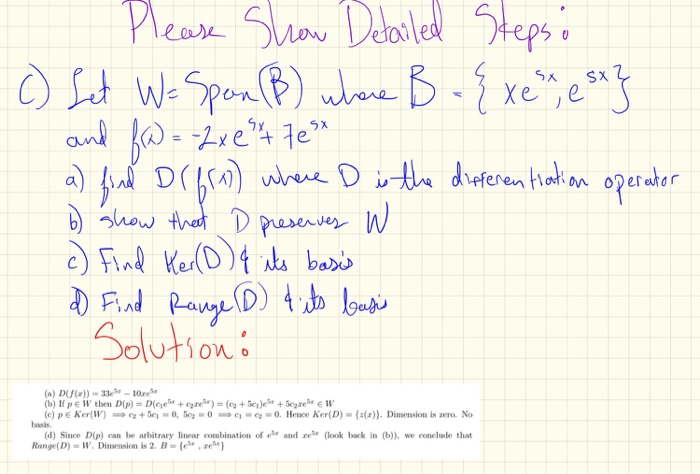 Please Show Detailed Steps:
c) Let W = Span(B) where B = { xe^5x, e^5x }
and f(x) = -2xe^5x + 7e^5x
a) find D(f(x)) where D is the differentiation operator
b) show that D preserves W
c) Find Ker(D) & its basis
d) Find Range(D) & its basis
Solution:
(a) D(f(x)) = 33e^5x − 10xe^5x
(b) If p ∈ W then D(p) = D(c₁e^5x + c₂xe^5x) = (c₂ + 5c₁)e^5x + 5c₂xe^5x ∈ W
(c) p ∈ Ker(W) ⟹ c₂ + 5c₁ = 0, 5c₂ = 0 ⟹ c₁ = c₂ = 0. Hence Ker(D) = {z(x)}. Dimension is zero. No
basis.
(d) Since D(p) can be arbitrary linear combination of e^5x and xe^5x (look back in (b)), we conclude that
Range(D) = W. Dimension is 2. B = {e^5x , xe^5x}